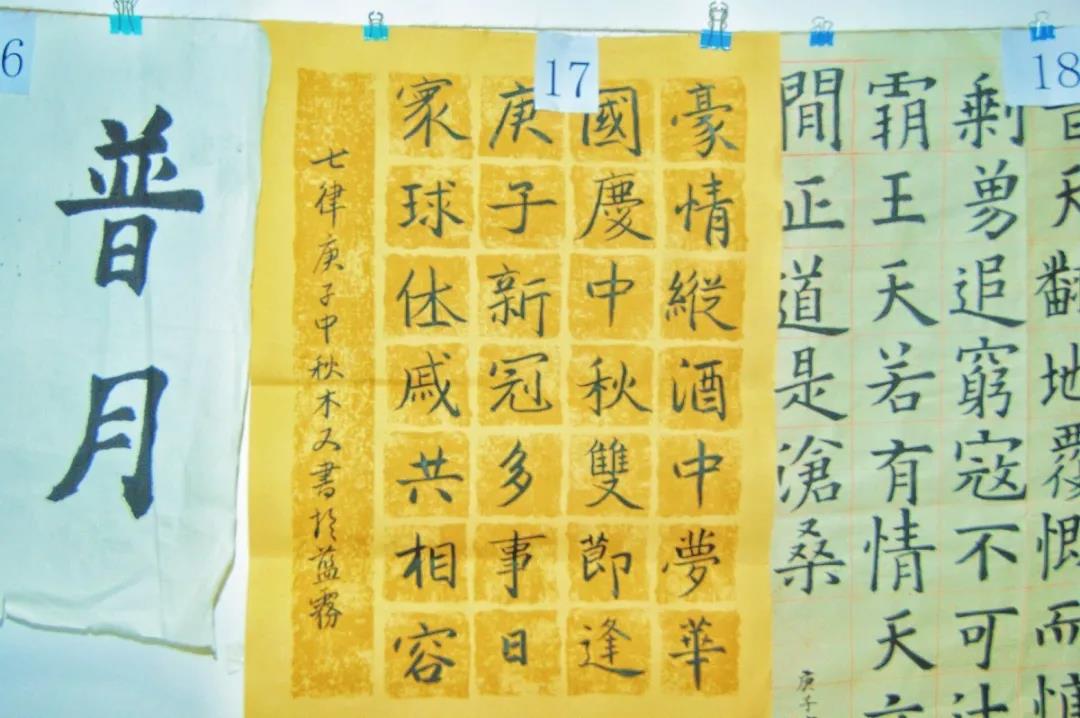 6
普月
17
豪情縱酒中夢華
國慶中秋雙節逢
庚子新冠多事日
寰球休戚共相容
七律庚子中秋木又書於藍霧
18
天翻地覆慨而慷
剩勇追窮寇不可沽
霸王天若有情天亦
間正道是滄桑
庚子